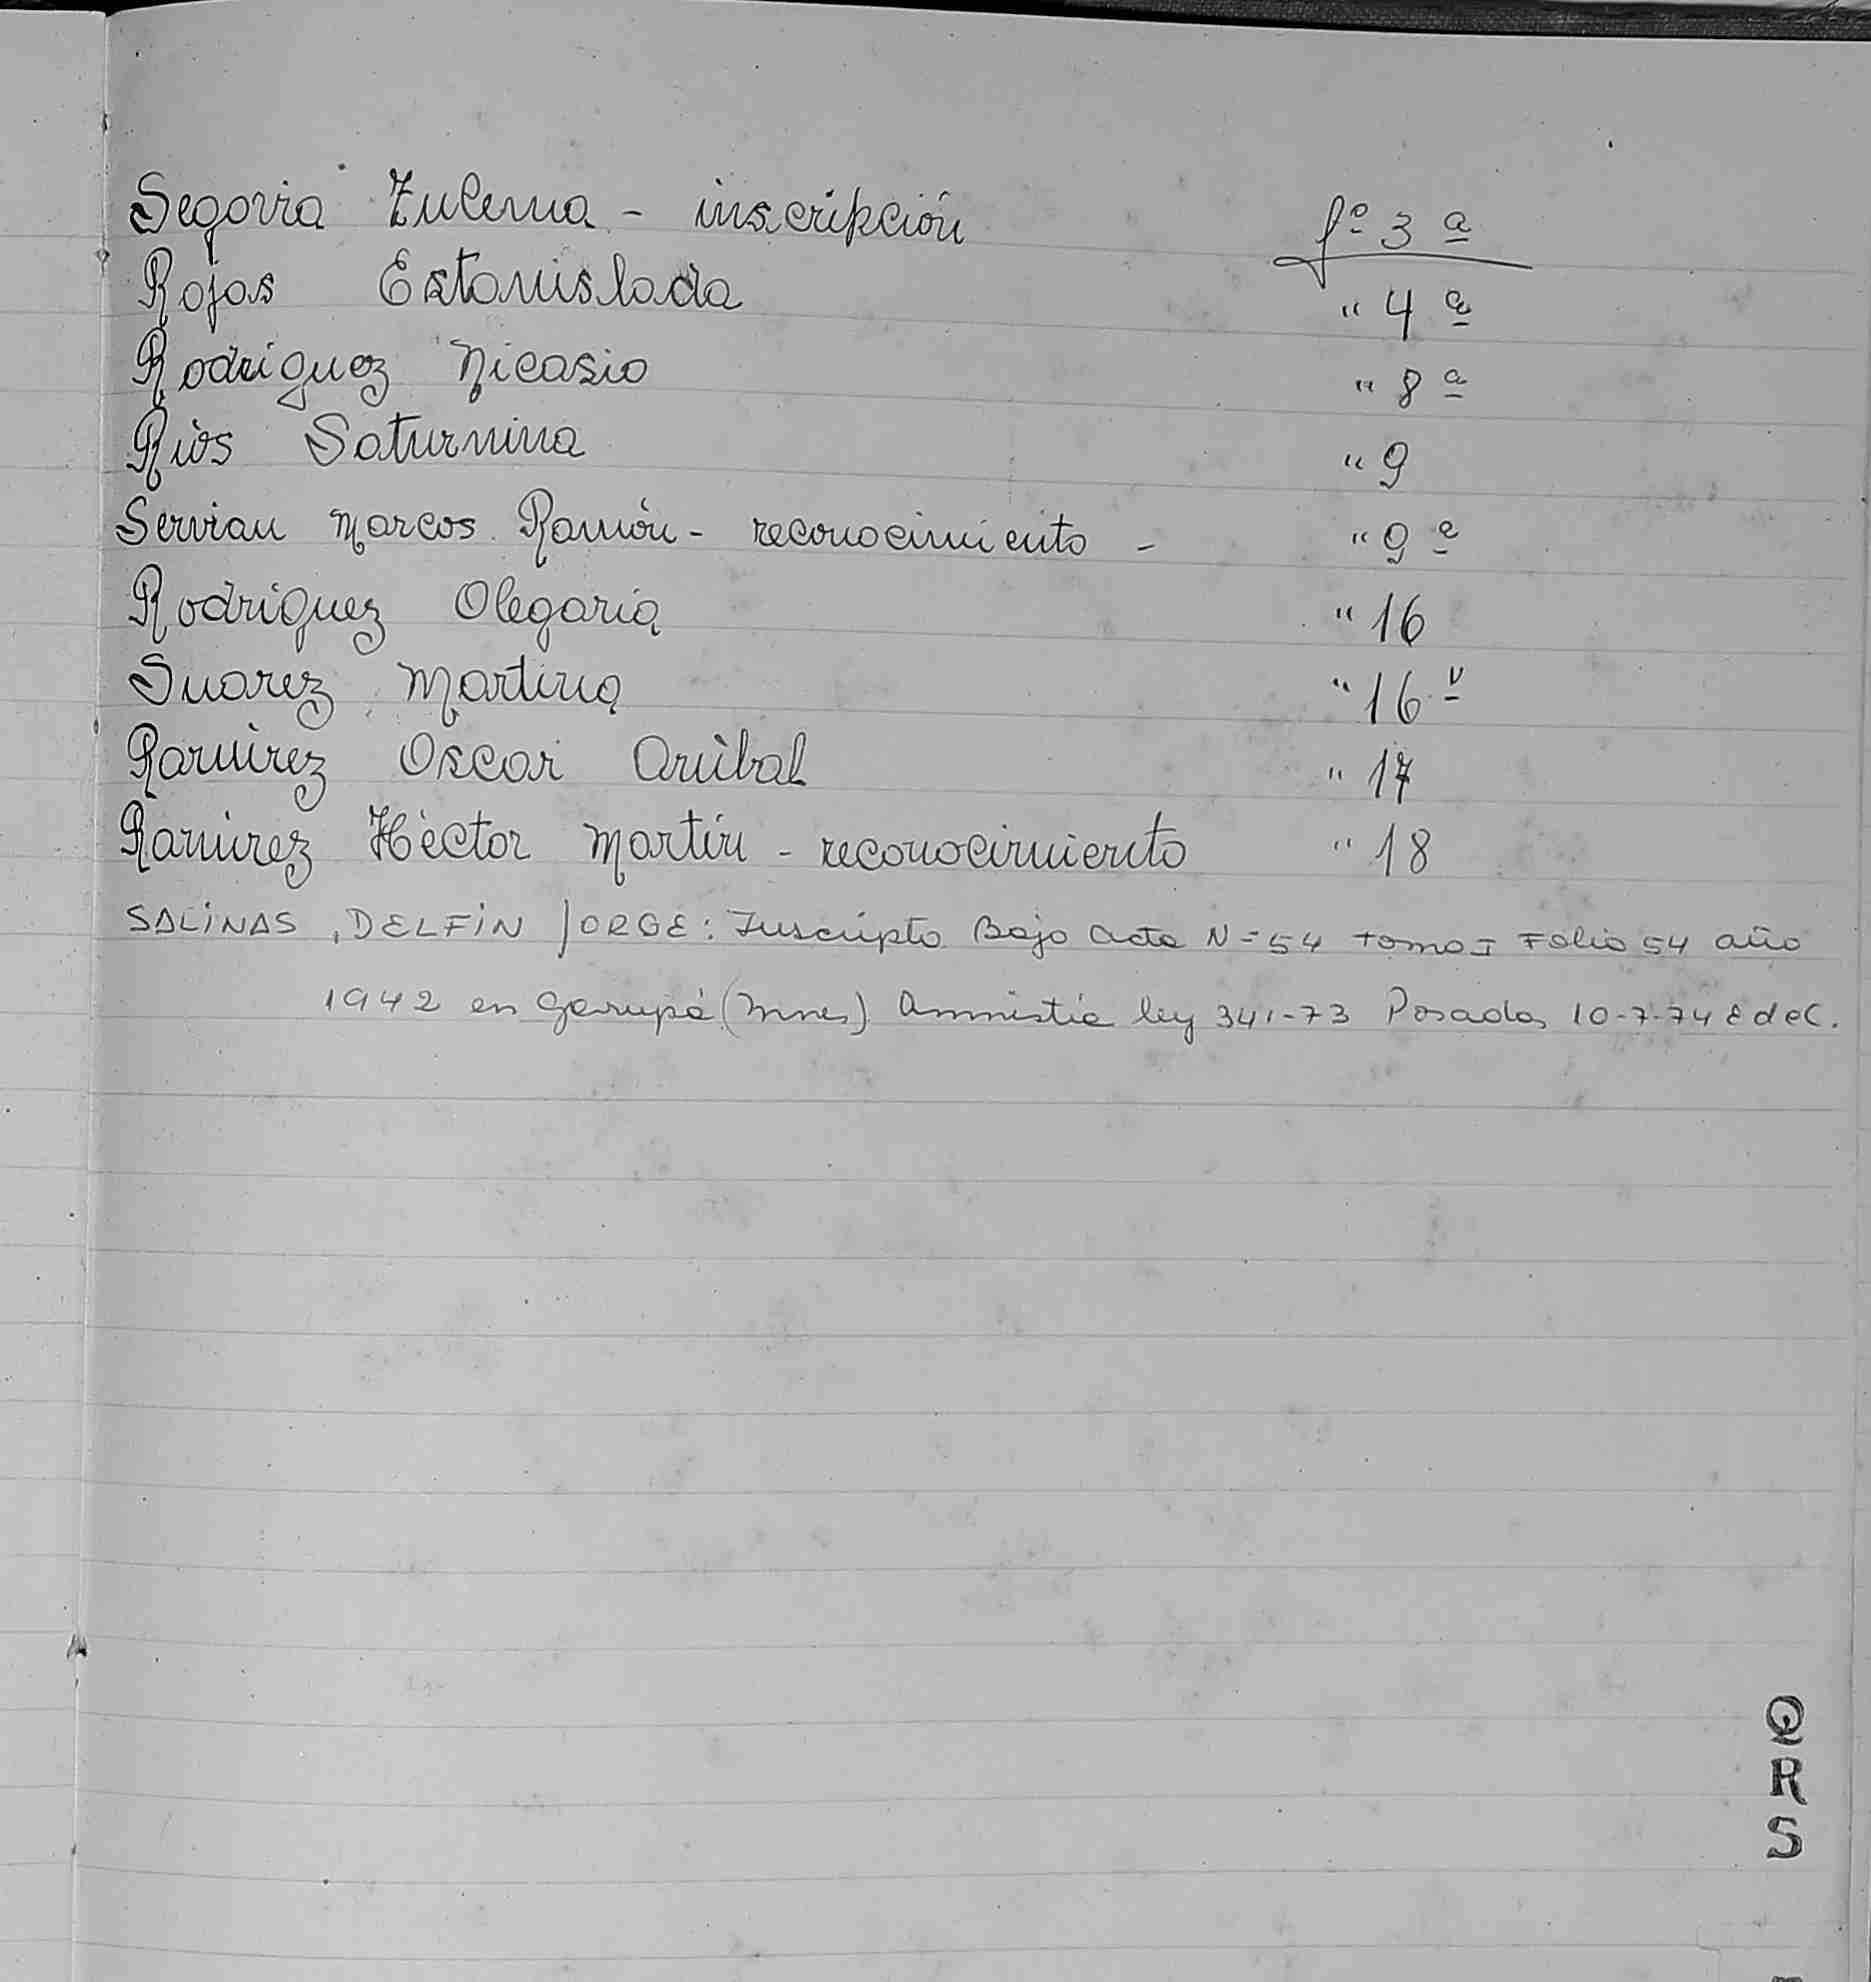 Segovia Zulema - inscripción fº 3 a
Rojas Estanislada " 4 a
Rodriguez Nicasio " 8 a
Ríos Saturnina " 9
Servian Marcos Ramón - reconocimiento - " 9 a
Rodriguez Olegaria " 16
Suarez Martina " 16 v
Ramirez Oscar Aníbal " 17
Ramirez Hèctor Martín - reconocimiento " 18
SALINAS, DELFIN JORGE: Inscripto Bajo acta N= 54 tomo I Folio 54 año
1942 en Garupá (Mnes) Amnistía ley 341-73 Posadas 10-7-74 E de C.
Q
R
S